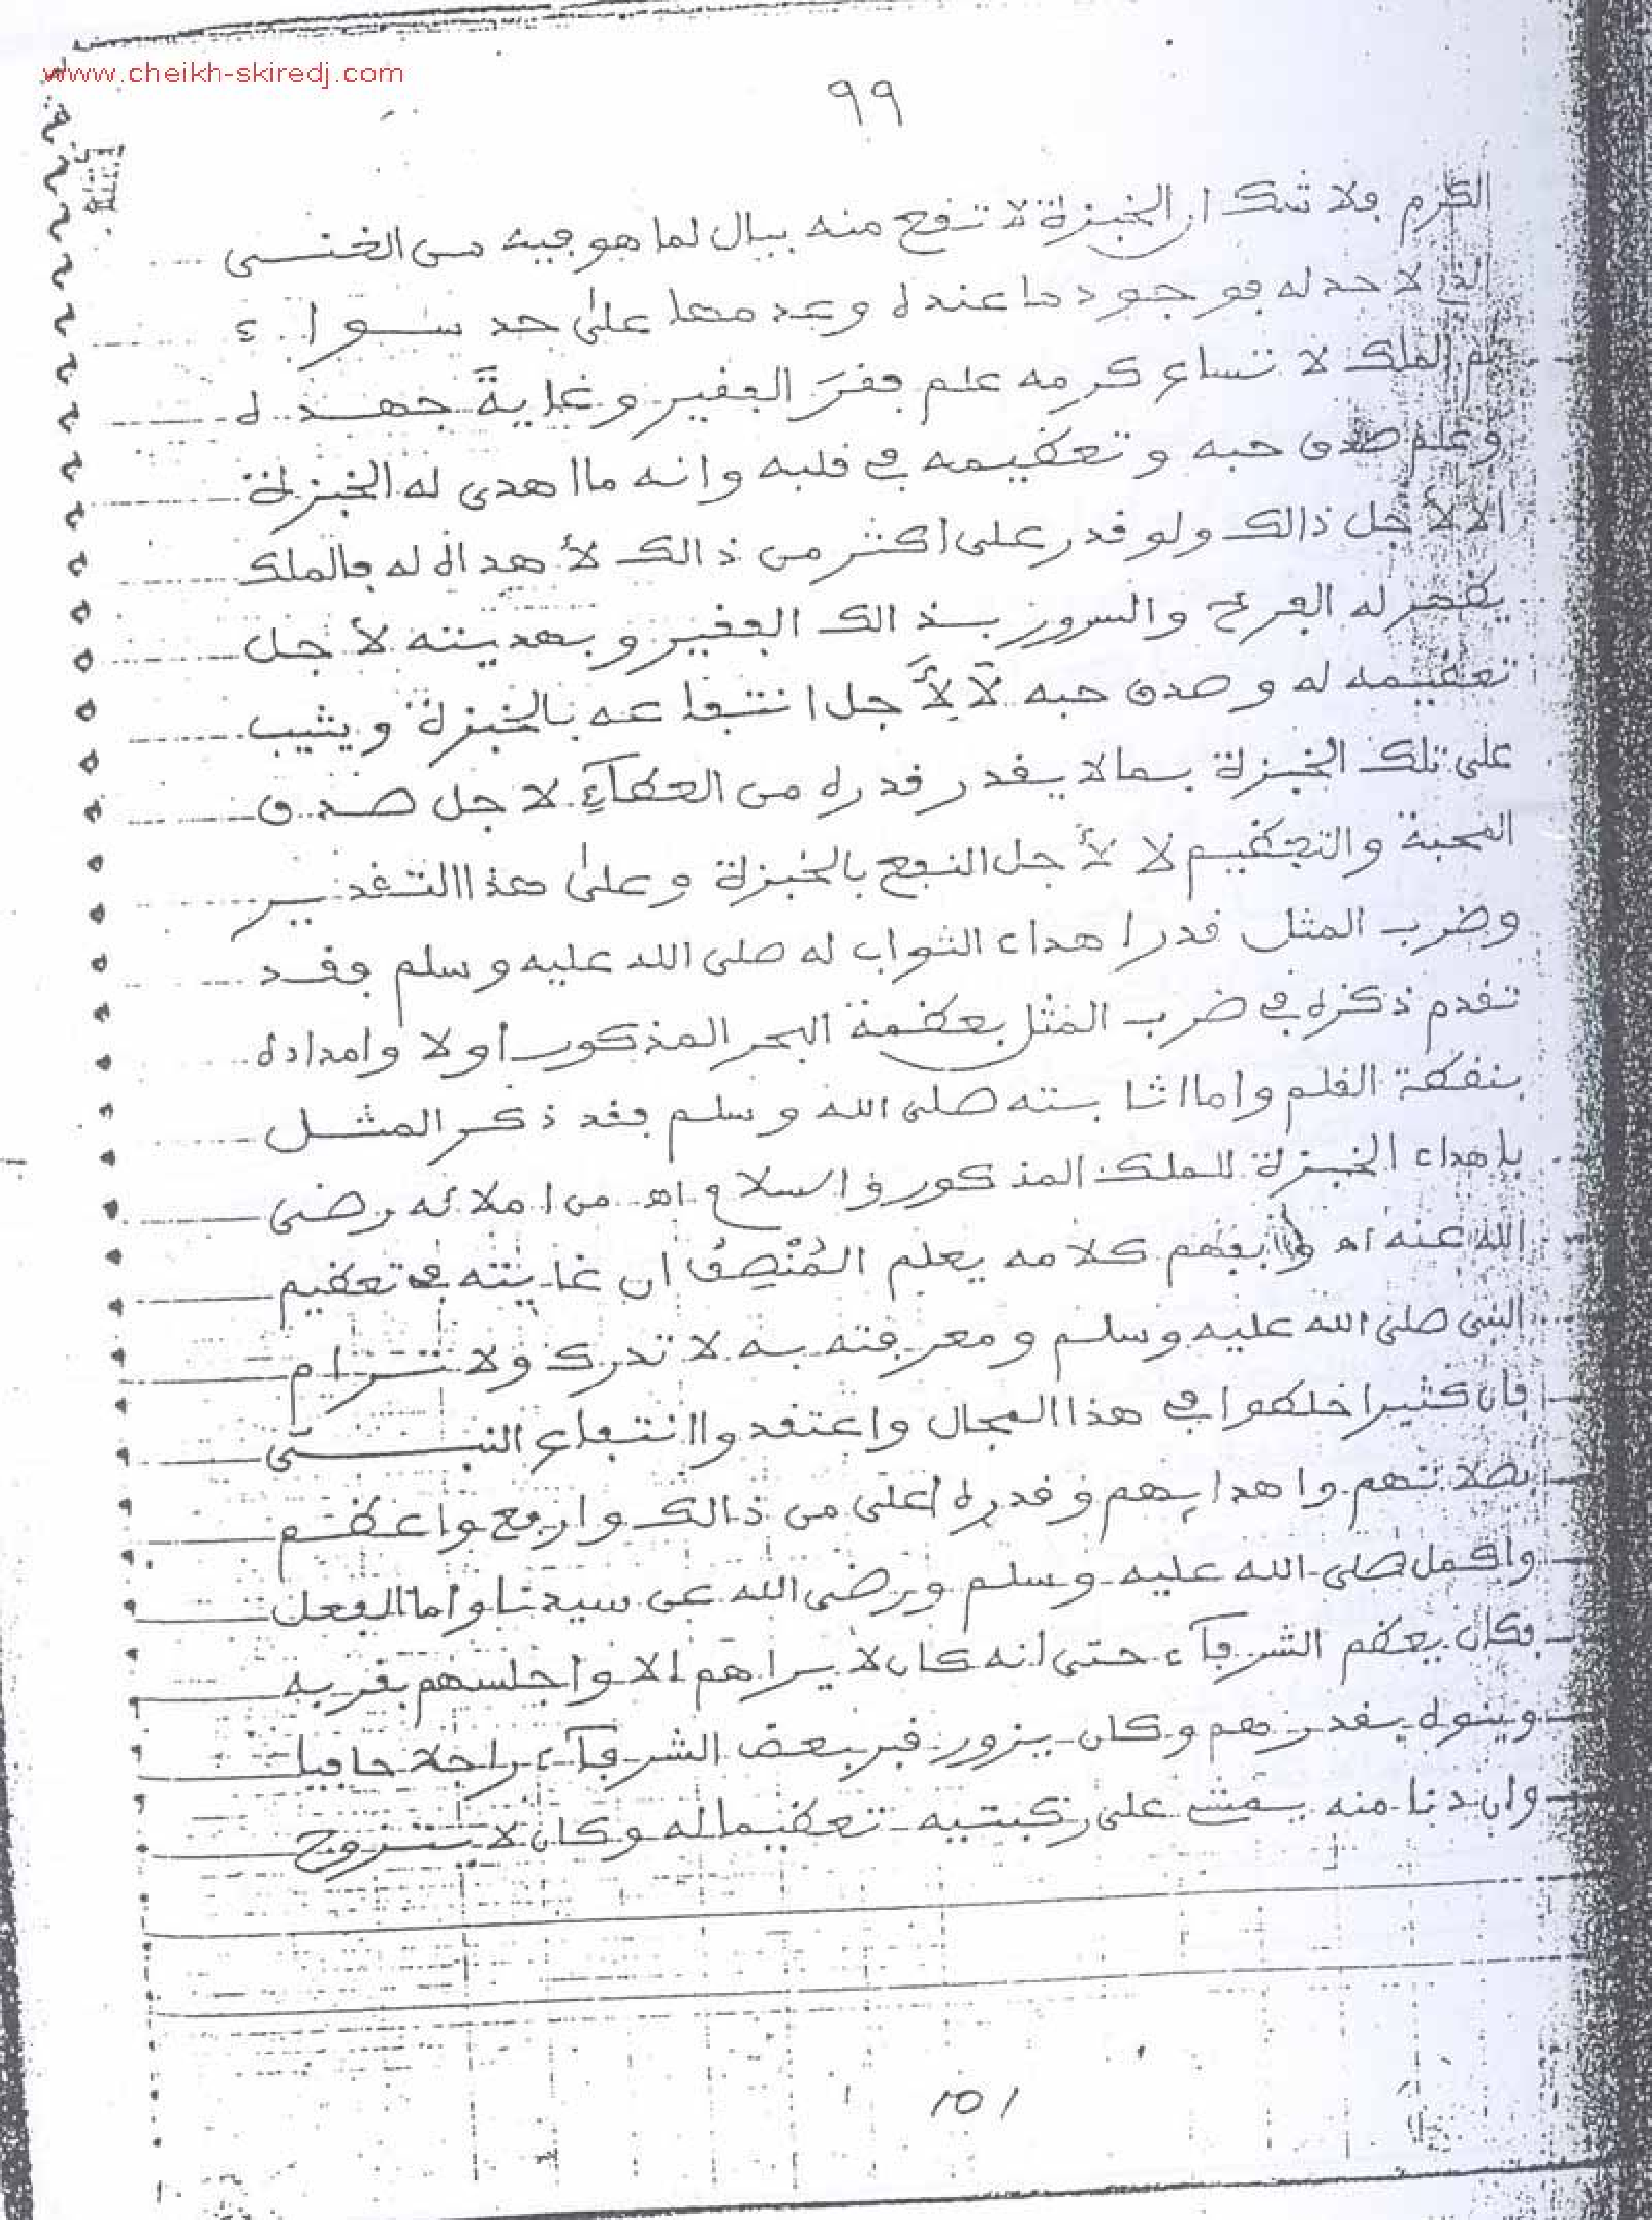 www.cheikh-skiredj.com
٩٩
الكرم فلا شك ان الخبزة لا تقع منه ببال لما هو فيه من الغنى
الذي لا حد له فوجودها عنده وعدمها على حد سواء
ثم الملك لاتساع كرمه علم فقرَ الفقير وغايةَ جهده
وعلم صدق حبه وتعظيمه في قلبه وانه ما اهدى له الخبزة
الا لأجل ذالك ولو قدر على اكثر من ذالك لأهداه له فالملك
يظهر له الفرح والسرور بذالك الفقير وبهديته لأجل
تعظيمه له وصدق حبه لاَ لِأَجل انتفاعه بالخبزة ويثيب
على تلك الخبزة بما لا يقدر قدره من العطآءِ لاجل صدق
المحبة والتعظيم لا لأجل النفع بالخبزة وعلى هذا التقدير
وضرب المثل قدر اهداء الثواب له صلى الله عليه وسلم فقد
تقدم ذكره في ضرب المثل بعظمة البحر المذكور أولا وامداده
بنقطة القلم واما اثابته صلى الله وسلم فقد ذكر المثل
باهداء الخبزة للملك المذكور والسلام اهـ من املائه رضي
الله عنه اهـ كلامه يعلم المُنْصِفُ ان غايته في تعظيم
النبي صلى الله عليه وسلم ومعرفته به لا تدرك ولا ترام
فان كثيرا خلطوا في هذا المجال واعتقدوا انتفاع النبي
بصلاتهم واهدايهم وقدره اعلى من ذالك وارفع واعظم
واكمل صلى الله عليه وسلم ورضي الله عن سيدنا واما الفعل
فكان يعظم الشرفآء حتى انه كان لا يراهم الا واجلسهم بقربه
وينوه بقدرهم وكان يزور قبر بعض الشرفآء راجلا حافيا
وان دنا منه يمشي على ركبتيه تعظيما له وكان لا يتزوج
101